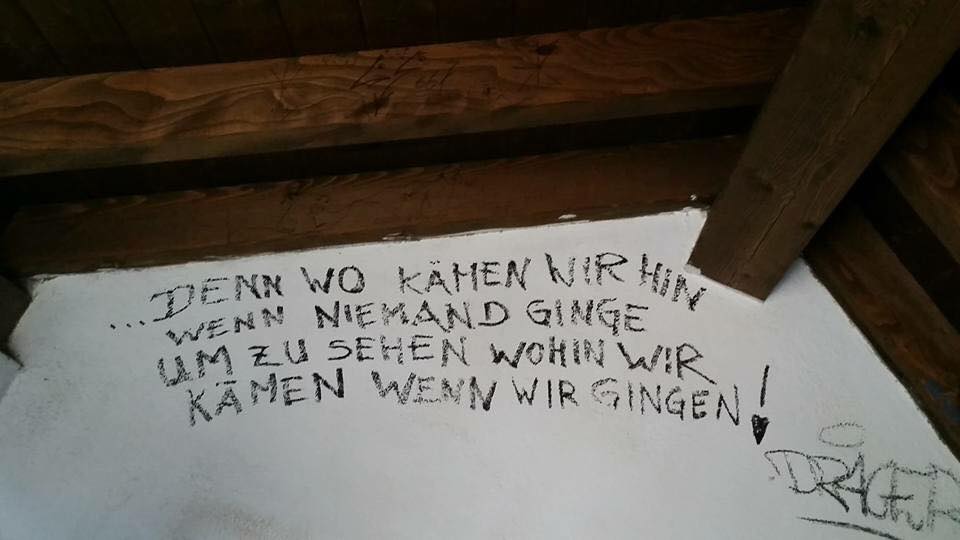 ...DENN WO KÄMEN WIR HIN
WENN NIEMAND GINGE
UM ZU SEHEN WOHIN WIR
KÄMEN WENN WIR GINGEN!